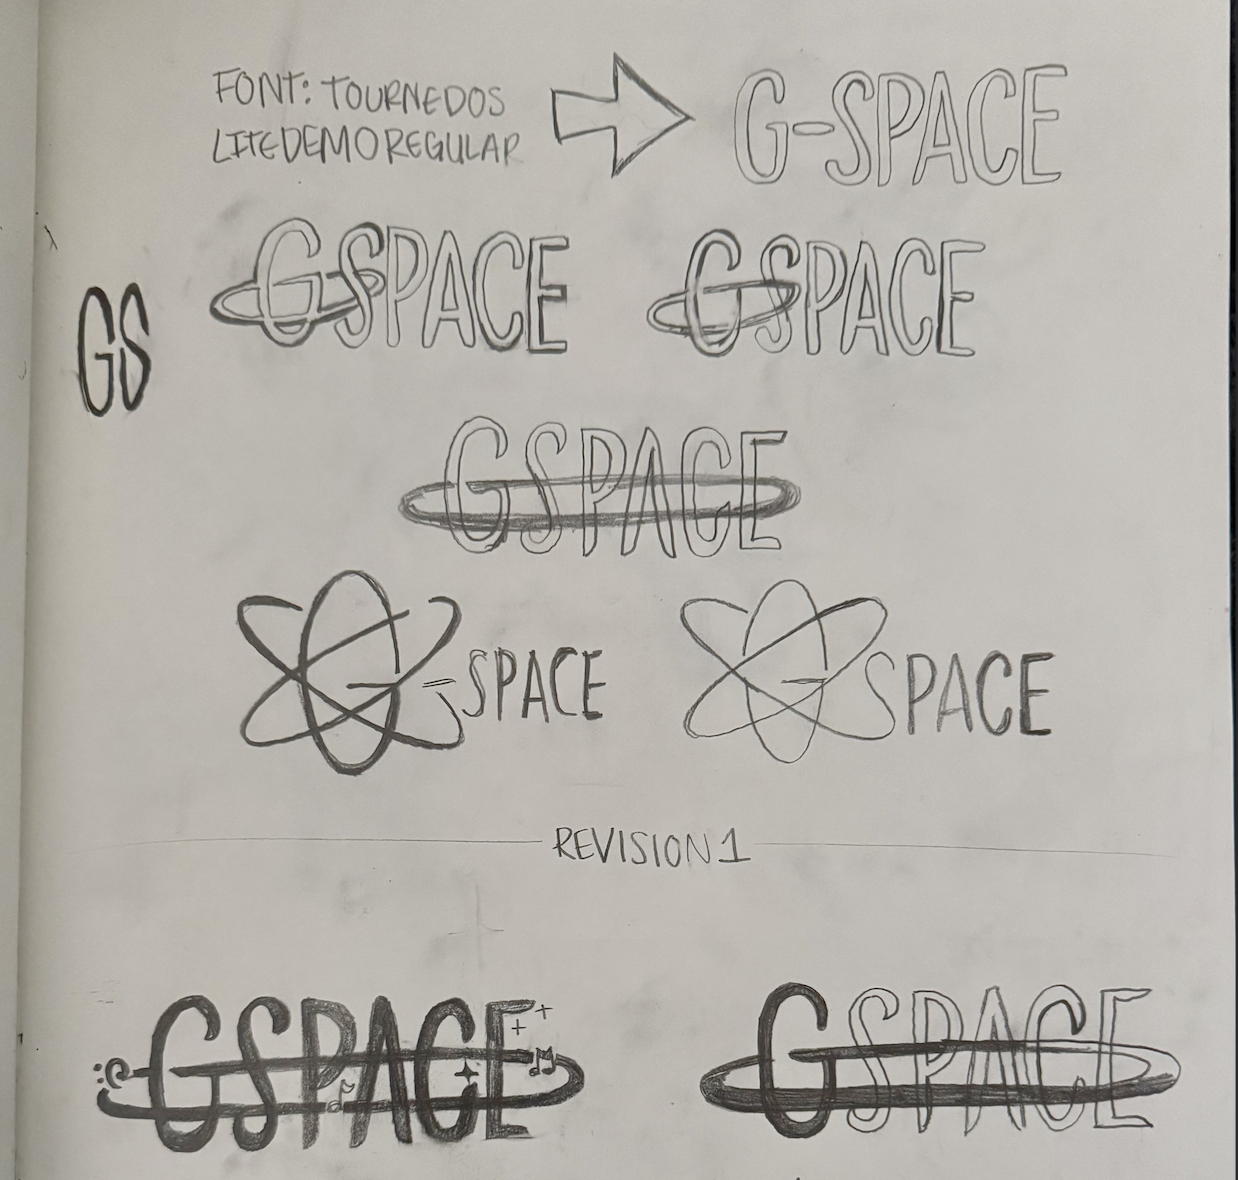 FONT: TOURNEDOS
LITEDEMOREGULAR
G-SPACE
GSPACE
GSPACE
GS
GSPACE
G-SPACE
GSPACE
REVISION 1
GSPACE
GSPACE